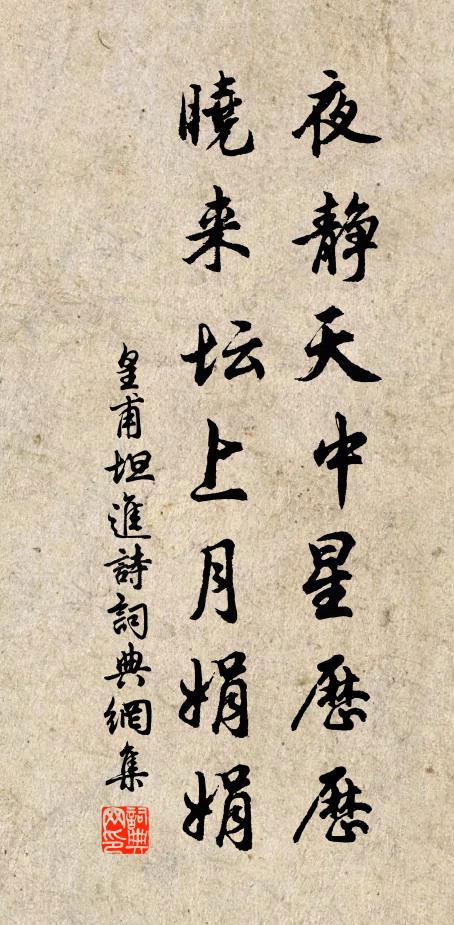 夜静天中星歷歷
曉来坛上月娟娟
皇甫坦進詩詞典網集
詞典
网印